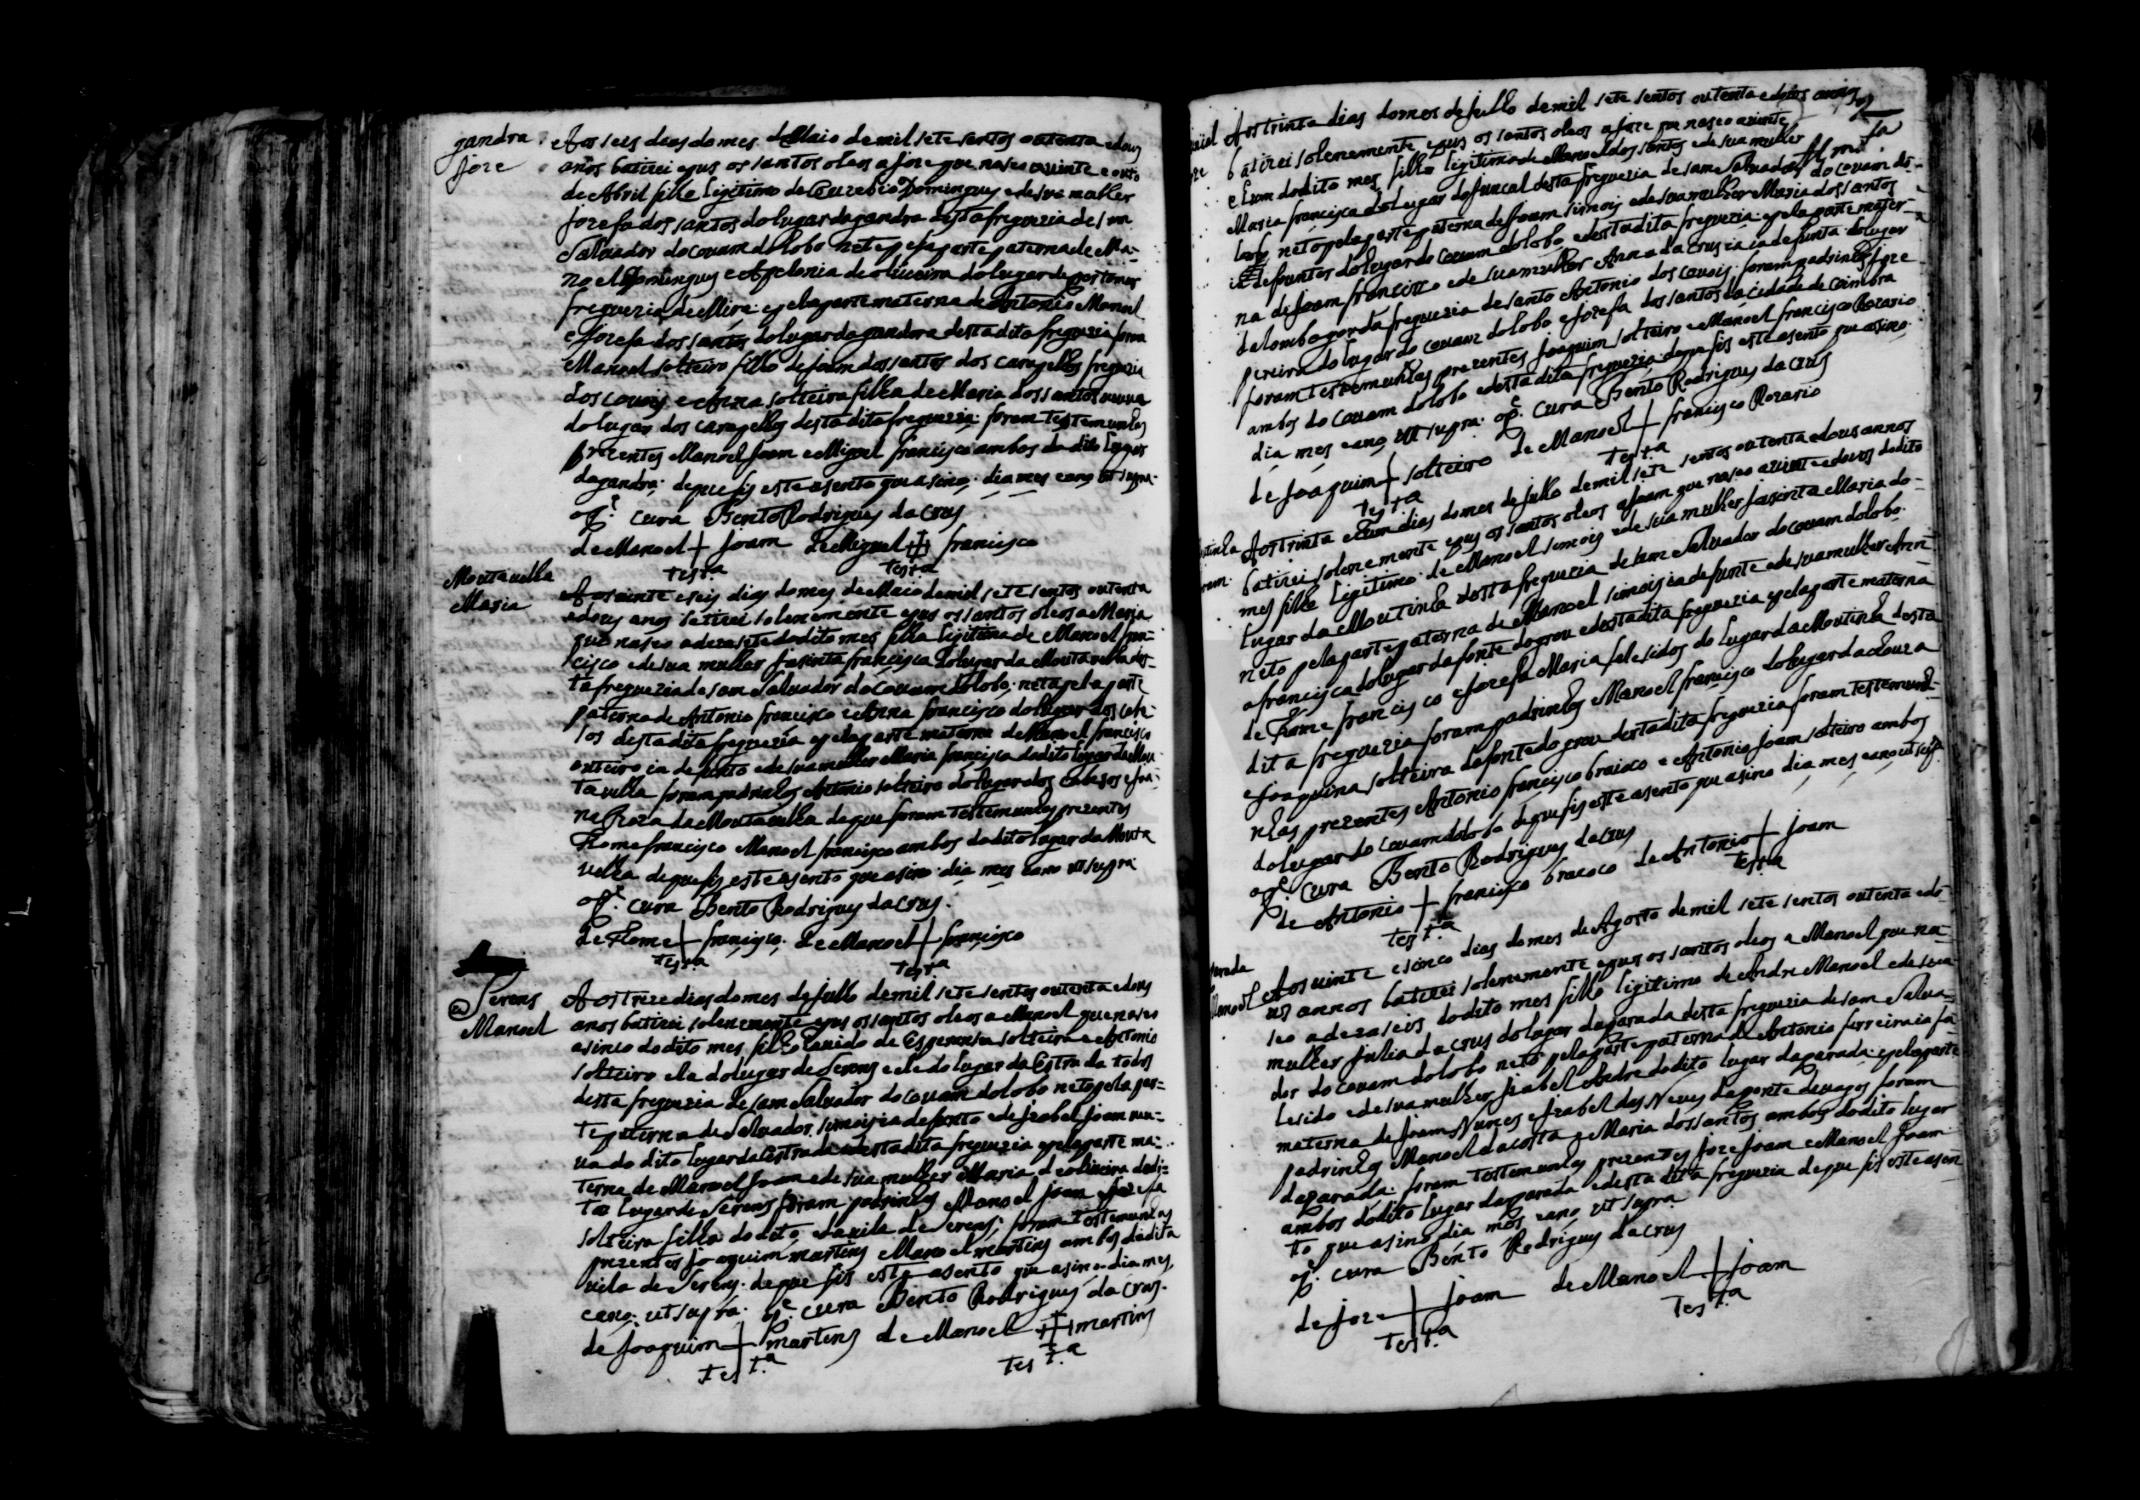 gandra
Joze
Aos seis dias do mes de Maio de mil sete sentos outenta e dous
años batizei e pus os santos oleos a Joze que naseo a vinte e outo
de Abril filho legitimo de Euzebio Domingues e de sua mulher
Jozefa dos santos do lugar da gandra desta freguezia de sam
Salvador do Covam do lobo neto pela parte paterna de Ma-
noel Domingues e Apelonia de oliveira do lugar de portomar
freguezia de Mira e pela parte materna de Antonio Manoel
e Jozefa dos santos do lugar da gandara desta dita freguezia foram
Manoel solteiro filho de Joam dos santos dos carapelhos freguezia
dos Covois e Anna solteira filha de Maria dos santos viuva
do lugar dos carapelhos desta dita freguezia foram testemunhas
prezentes Manoel Joam e Miguel francisco ambos do dito lugar
da gandra de que fis este asento que asino dia mes e ano ut supra
o Pe. cura Bento Rodrigues da Crus
de Manoel + Joam de Miguel + francisco
testa testa
Moutavelha
Maria
Aos vinte e seis dias do mes de Maio de mil sete sentos outenta
e dous anos batizei solenemente e pus os santos oleos a Maria
que naseo a dezasete do dito mes filha legitima de Manoel fran-
cisco e de sua mulher Jasinta francisca do lugar da Moutavelha des-
ta freguezia de sam Salvador do Covam do lobo neta pela parte
paterna de Antonio francisco e Anna francisca do lugar dos cabe-
sos desta dita freguezia e pela parte materna de Manoel francisco
outeiro ia defunto e de sua mulher Maria francisca do dito lugar da Mou-
tavelha foram padrinhos Antonio solteiro do lugar dos Cabesos e Joa-
na Roza da Moutavelha de que foram testemunhas prezentes
Thome francisco Manoel francisco ambos do dito lugar da Mouta
velha de que fis este asento que asino dia mes e ano ut supra
o Pe. cura Bento Rodrigues da Crus
de Thome + francisco de Manoel + francisco
testa testa
Serens
Manoel
Aos treze dias do mes de Julho de mil sete sentos outenta e dous
anos batizei solenemente e pus os santos oleos a Manoel que naseo
a sinco do dito mes filho de Esperansa solteira e Antonio
solteiro ela do lugar de Serens e ele do lugar da Estrada todos
desta freguezia de sam Salvador do Covam do lobo neto pela par-
te paterna de Salvador simois ia defunto e de Izabel Joam viu-
va do dito lugar da Estrada e desta dita freguezia e pela parte ma-
terna de Manoel Joam e de sua mulher Maria de oliveira do di-
to lugar de Serens foram padrinhos Manoel Joam Jozefa
solteira filha do dito da vila de Serens foram testemunhas
prezentes Joaquim martins e Manoel martins ambos da dita
vila de Serens de que fis este asento que asino dia mes
e ano ut supra o Pe. cura Bento Rodrigues da Crus
de Joaquim + martins de Manoel + martins
testa testa
Aos trinta dias do mes de Julho de mil sete sentos outenta e dous anos
batizei solenemente e pus os santos oleos a Joze que naseo a vinte
e hum do dito mes filho legitimo de Manoel dos santos e de sua mulher
Maria francisca do lugar do funcal desta freguezia de sam Salvador do Covam do
lobo neto pela parte paterna de Joam simois e de sua mulher Maria dos santos
ia defuntos do lugar do Covam do lobo e desta dita freguezia e pela parte mater-
na de Joam francisco e de sua mulher Anna da Crus ia defunta do lugar
da lomba gorda freguezia de santo Antonio dos Covois foram padrinhos Joze
pereira do lugar do Covam do lobo e Jozefa dos santos da Cidade de Coimbra
foram testemunhas prezentes Joaquim solteiro e Manoel francisco Rozario
ambos do Covam do lobo e desta dita freguezia de que fis este asento que asino
dia mes e ano ut supra o Pe. cura Bento Rodrigues da Crus
de Joaquim + solteiro de Manoel + francisco Rozario
testa testa
Aos trinta e hum dias do mes de Julho de mil sete sentos outenta e dous annos
batizei solenemente e pus os santos oleos a Joam que naseo a vinte e dous do dito
mes filho legitimo de Manoel simois e de sua mulher Jasinta Maria do
lugar da Moutinha desta freguezia de sam Salvador do Covam do lobo
neto pela parte paterna de Manoel simois ia defunto e de sua mulher Ann-
a francisca do lugar da fonte do grou e desta dita freguezia e pela parte materna
de Thome francisco e Jozefa Maria falesidos do lugar da Moutinha desta
dita freguezia foram padrinhos Manoel francisco do lugar da
e Joaquina solteira da fonte do grou desta dita freguezia foram testemu-
nhas prezentes Antonio francisco braioco e Antonio Joam solteiro ambos
do lugar do Covam do lobo de que fis este asento que asino dia mes e ano ut supra
o Pe. cura Bento Rodrigues da Crus
de Antonio + francisco braioco de Antonio + Joam
testa testa
Aos vinte e sinco dias do mes de Agosto de mil sete sentos outenta e do-
us annos batizei solenemente e pus os santos oleos a Manoel que na-
seo a dezaseis do dito mes filho legitimo de Andre Manoel e de sua
mulher Julia da crus do lugar da parada desta freguezia de sam Salva-
dor do Covam do lobo neto pela parte paterna de Antonio ferreira ia fa-
lesido e de sua mulher Izabel Andre do dito lugar da parada e pela parte
materna de Joam Nunes e Izabel das Neves da ponte de vagos foram
padrinhos Manoel da costa e Maria dos santos ambos do dito lugar
da parada foram testemunhas prezentes Joze Joam e Manoel Joam
ambos do dito lugar da parada e desta dita freguezia de que fis este asen
to que asino dia mes e ano ut supra
o Pe. cura Bento Rodrigues da Crus
de Joze + Joam de Manoel + Joam
testa testa